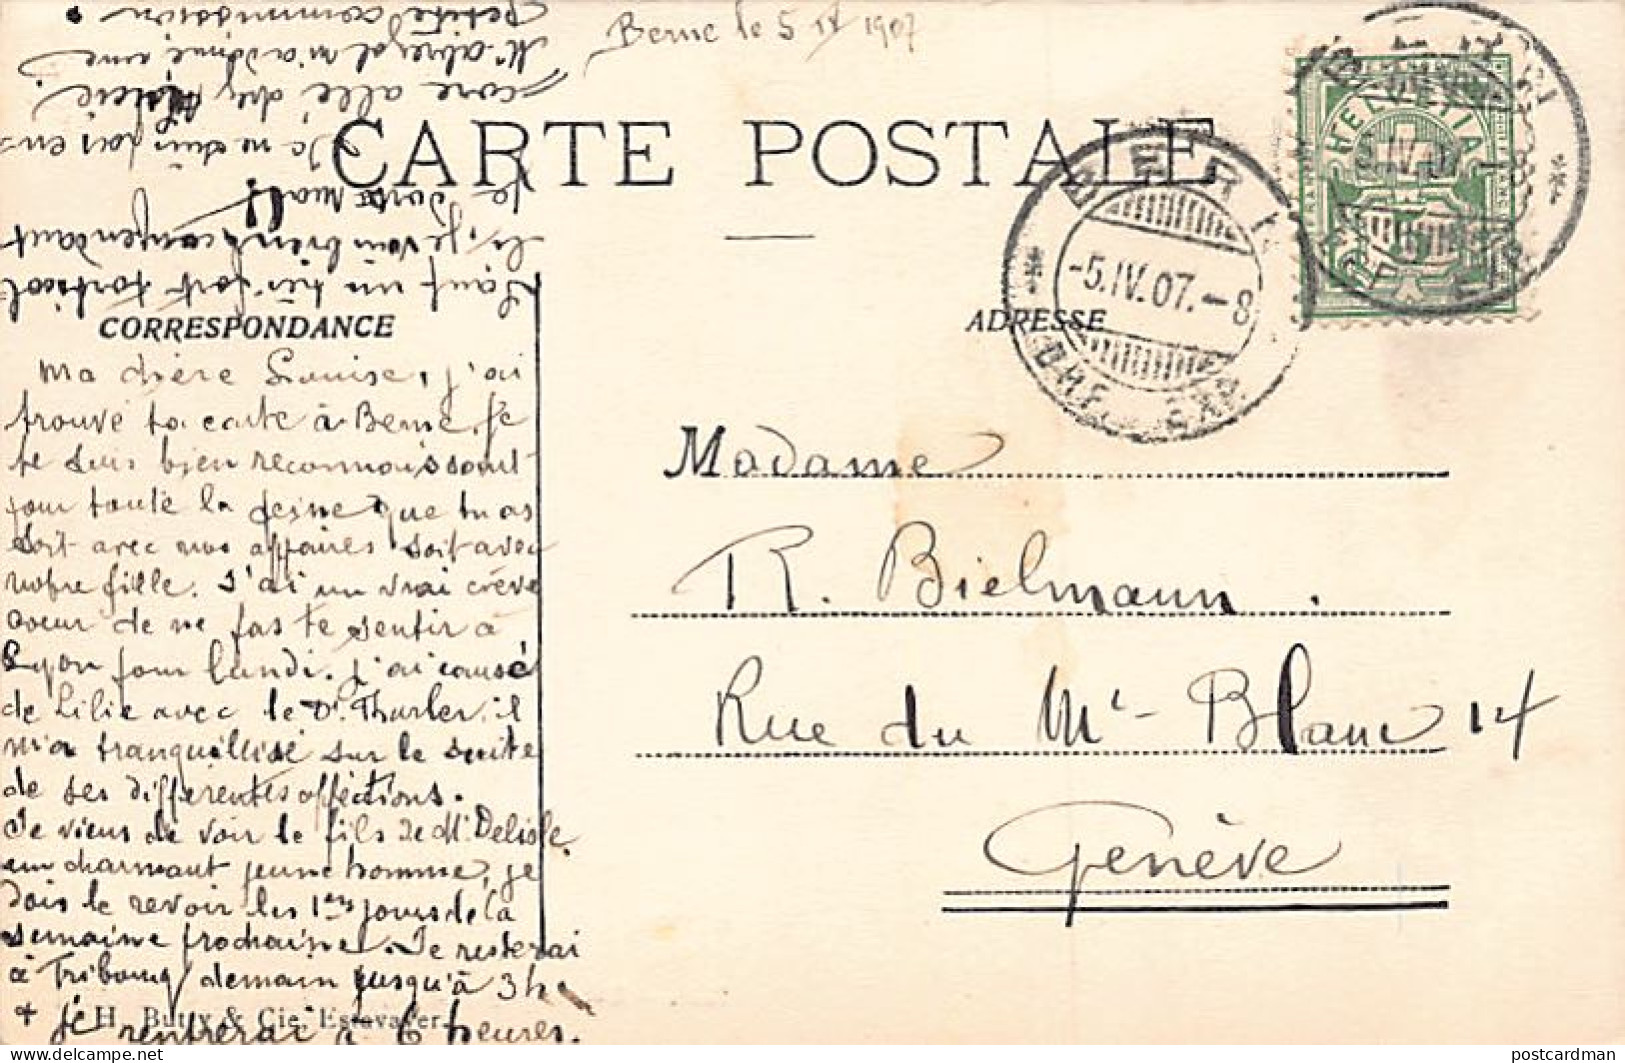 Berne le 5 IV 1907
CARTE POSTALE
CORRESPONDANCE
ADRESSE
BERN
-5.IV.07.-8
BRF. EXP.
HELVETIA
Ma chère Louise, j'ai
trouvé ta carte à Berne. Je
te suis bien reconnaissant
pour toute la peine que tu as
soit avec nos affaires soit avec
notre fille. J'ai un vrai crève
coeur de ne pas te sentir à
Lyon pour lundi. J'ai causé
de Lilie avec le Dr. Thurler, il
m'a tranquillisé sur la suite
de ses différentes affections.
Je viens de voir le fils de Mr. Delisle,
un charmant jeune homme, je
dois le revoir les 1ers jours de la
semaine prochaine. Je resterai
à Fribourg demain jusqu'à 3h.
+ je rentrerai à 6 heures.
Sauf un très fort torticolis
je vais bien cependant
je dors mal!
Je ne suis pas en
core allé chez
M. m'a donné une
petite commission.
Madame
R. Bielmann.
Rue du Mt-Blanc 14
Genève
H. Butty & Cie, Estavayer.
postcardman
delcampe.net